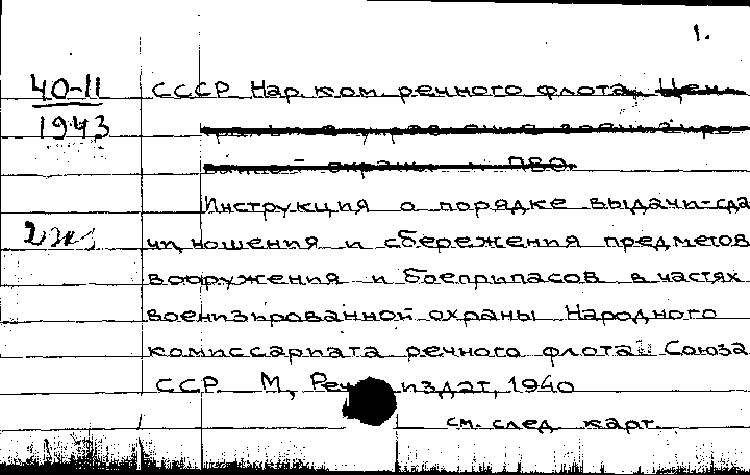 1.
40-11 СССР Нар. ком. речного флота. Цен-
1943 трального управления военизиро-
ванной охраны и ПВО.
Инструкция о порядке выдачи-сда
2 экз чи, ношения и сбережения предметов
вооружения и боеприпасов в частях
военизированной охраны Народного
комиссариата речного флота Союза
ССР. М, Реч издат, 1940
см. след. карт.